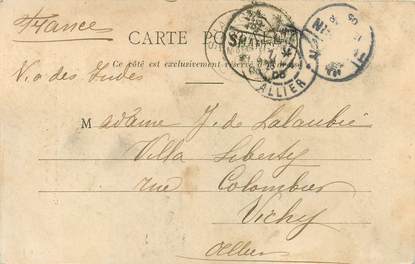 France
CARTE POSTALE
Ce côté est exclusivement réservé à l'adresse
Via des Indes
ALLIER
Madame J. de Lalaubie
Villa Liberty
rue Colombier
Vichy
Allier